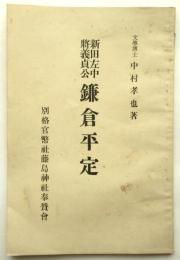 文學博士 中村孝也著
新田左中
將義貞公
鎌倉平定
別格官幣社藤島神社奉賛會